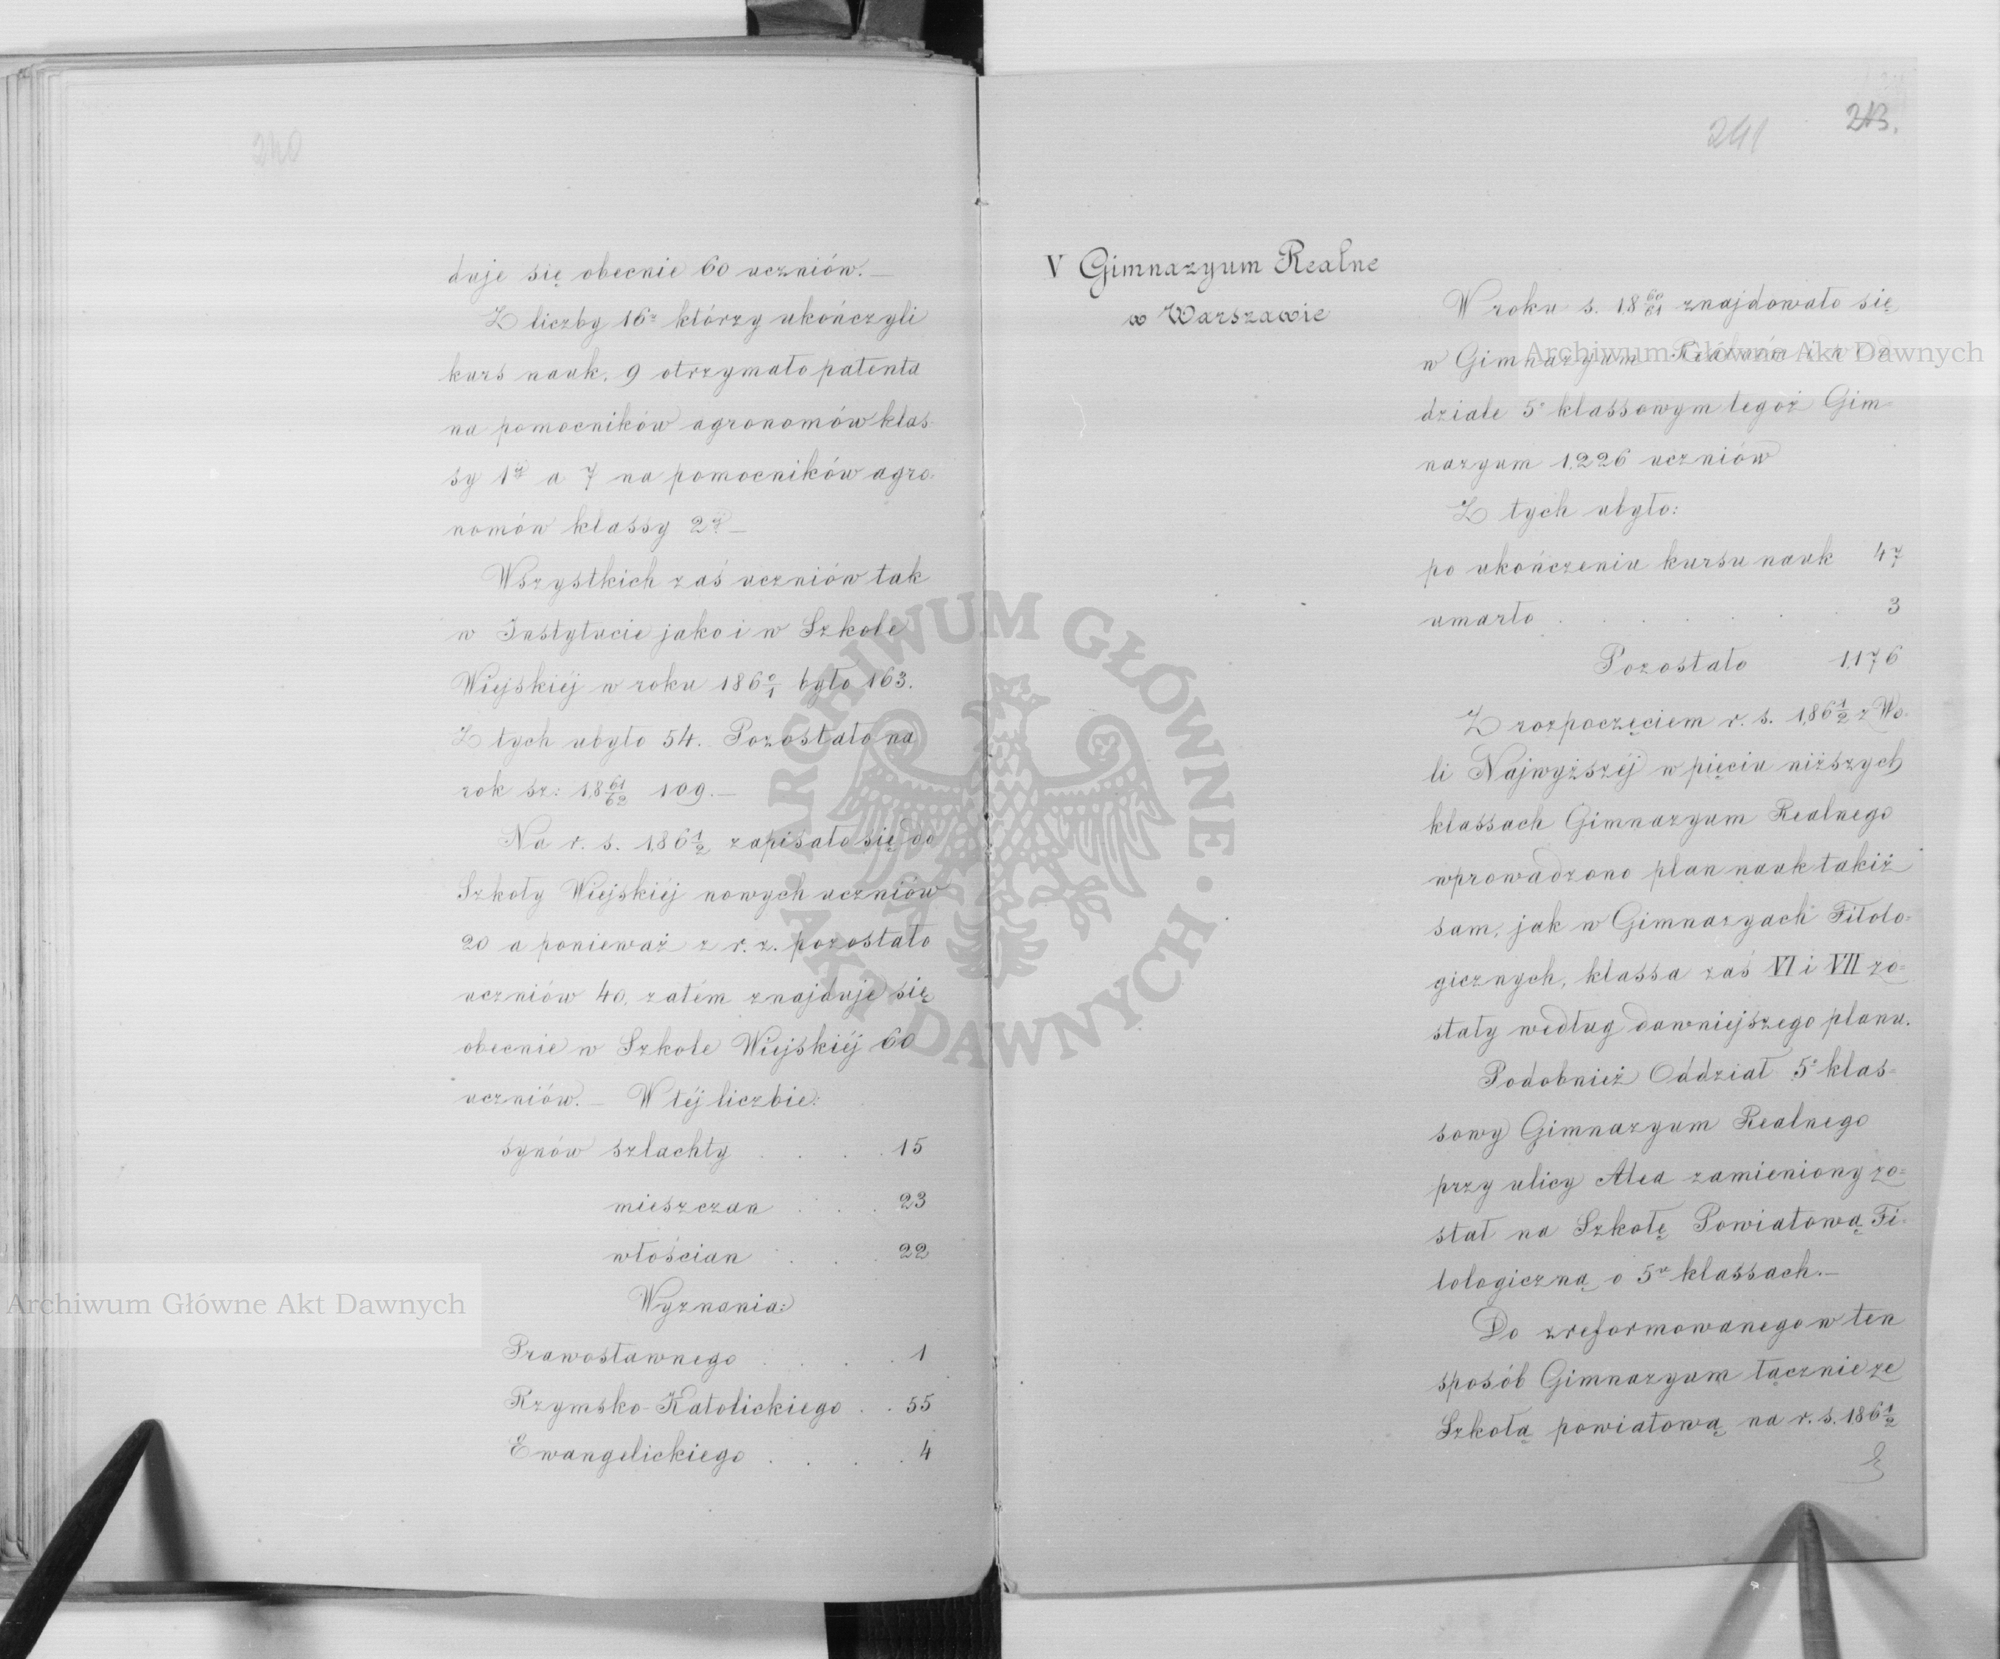 240
duje się obecnie 60 uczniów. —
Z liczby 16u którzy ukończyli
kurs nauk, 9 otrzymało patenta
na pomocników agronomów klas-
sy 1éj a 7 na pomocników agro-
nomów klassy 2éj —
Wszystkich zaś uczniów tak
w Instytucie jako i w Szkole
Wiejskiéj w roku 186 0/1 było 163.
Z tych ubyło 54. Pozostało na
rok sz: 18 61/62 109. —
Na r. s. 186 1/2 zapisało się do
Szkoły Wiejskiéj nowych uczniów
20 a ponieważ z r. z. pozostało
uczniów 40, zatém znajduje się
obecnie w Szkole Wiejskiéj 60
uczniów. — W téj liczbie:
synów szlachty . . . . 15
mieszczan . . . 23
włościan . . . 22
Wyznania:
Prawosławnego . . . . 1
Rzymsko-Katolickiego . . 55
Ewangelickiego . . . . 4
241
213.
V Gimnazyum Realne
w Warszawie
W roku s. 18 60/61 znajdowało się
w Gimnazyum
dziale 5o klassowym tegoż Gim=
nazyum 1,226 uczniów
Z tych ubyło:
po ukończeniu kursu nauk 47
umarło . . . . . . 3
Pozostało 1,176
Z rozpoczęciem r. s. 186 1/2 z Wo-
li Najwyższéj w pięciu niższych
klassach Gimnazyum Realnego
wprowadzono plan nauk takiż
sam, jak w Gimnazyach Filolo=
gicznych, klassa zaś VI i VII zo=
stały według dawniejszego planu.
Podobnież Oddział 5o klas=
sowy Gimnazyum Realnego
przy ulicy Alea zamieniony zo=
stał na Szkołę Powiatową Fi-
lologiczną o 5u klassach. —
Do zreformowanego w ten
sposób Gimnazyum łącznie ze
Szkołą powiatową na r. s. 186 1/2
Archiwum Główne Akt Dawnych
Archiwum Główne Akt Dawnych
ARCHIWUM GŁÓWNE · AKT DAWNYCH ·